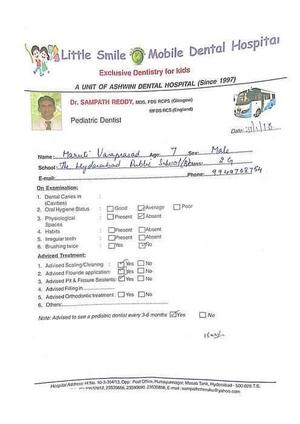 Little Smile Mobile Dental Hospital
Exclusive Dentistry for kids
A UNIT OF ASHWINI DENTAL HOSPITAL (Since 1997)
Dr. SAMPATH REDDY, MDS, FDS RCPS (Glasgow)
MFDS RCS (England)
Pediatric Dentist
Date:
Name: Maruti Varaprasad age: 7 Sex: Male
School: The Hyderabad Public School 2G
E-mail: Phone:
On Examination:
1. Dental Caries in :
(Cavities)
2. Oral Hygiene Status : Good Average Poor
3. Physiological : Present Absent
Spaces
4. Habits : Present Absent
5. Irregular teeth : Present Absent
6. Brushing twice : Yes No
Adviced Treatment:
1. Advised Scaling/Cleaning : Yes No
2. Advised Flouride application: Yes No
3. Advised Pit & Fissure Sealents: Yes No
4. Advised Filling in
5. Advised Orthodontic treatment : Yes No
6. Others:
Note: Advised to see a pediatric dentist every 3-6 months Yes No
Hospital Address: H.No. 10-3-304/13, Opp: Post Office, Humayunnagar, Masab Tank, Hyderabad - 500 028 T.S.